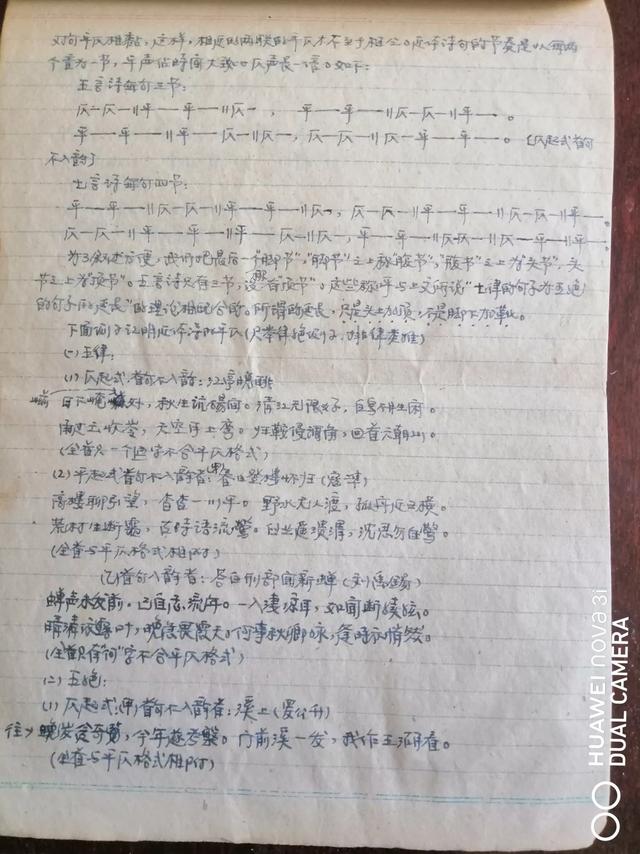 对句平仄相黏，这样，相近的两联的平仄才不至于相公。近体诗句的节奏是以每两
个音为一节，平声占时间大致
五言诗每句三节：
仄—仄—‖平——平——‖仄—，平——平——‖仄—仄—‖平——。
平——平——‖平——仄—‖仄—，仄—仄—‖仄—平——平——。（仄起式首句
不入韵）
七言诗每句四节：
平——平——‖仄—仄—‖平——平——‖仄—，仄—仄—‖平——平——‖仄—仄—‖平——。
仄—仄—‖平——平——‖平——仄—‖仄—，平——平——‖仄—仄—‖仄—平——‖平——。
为了叙述方便，我们把最后一节"脚节"，"脚节"之上称"腹节"，"腹节"之上为"头节"，头
节之上为"顶节"。五言诗只有三节，没有"顶节"。这些称呼与上文所说"七律的句子为五绝
的句子的延长"的理论相配合的。所谓的延长，只是头上加顶，不是脚下加靴。
下面例子证明近体诗的平仄（只举律绝例子，排律类推）
（一）五律：
（1）仄起式：首句不入韵：江亭晚眺
日下 ，秋生 间。清江无限好，白鸟不胜闲。
云收岭，天空月上弯。归鞍侵 角，回首六朝山。
（全首只一个 字不合平仄格式）
（2）平起式首句不入韵者：甲春日登楼怀归（寇准）
高楼聊引望，杳杳一川平。野水无人渡，孤舟尽日横。
荒村生断霭，古寺语流莺。旧业遥清渭，沉思忽自惊。
（全首与平仄格式相附）
（乙）首句入韵者：答白刑部闻新蝉（刘禹锡）
蝉声未发前，已自感流年。一入凄凉耳，如闻断续弦。
晴清依露叶，晚急畏霞天。何事秋卿咏，逢时亦悄然。
（全首只有"何"字不合平仄格式）
（二）五绝：
（1）仄起式：（甲）首句不入韵者：溪上（
往 ，今年 。门前溪一发，我作五湖看。
（全首与平仄格式相附）
HUAWEI nova 3i
DUAL CAMERA